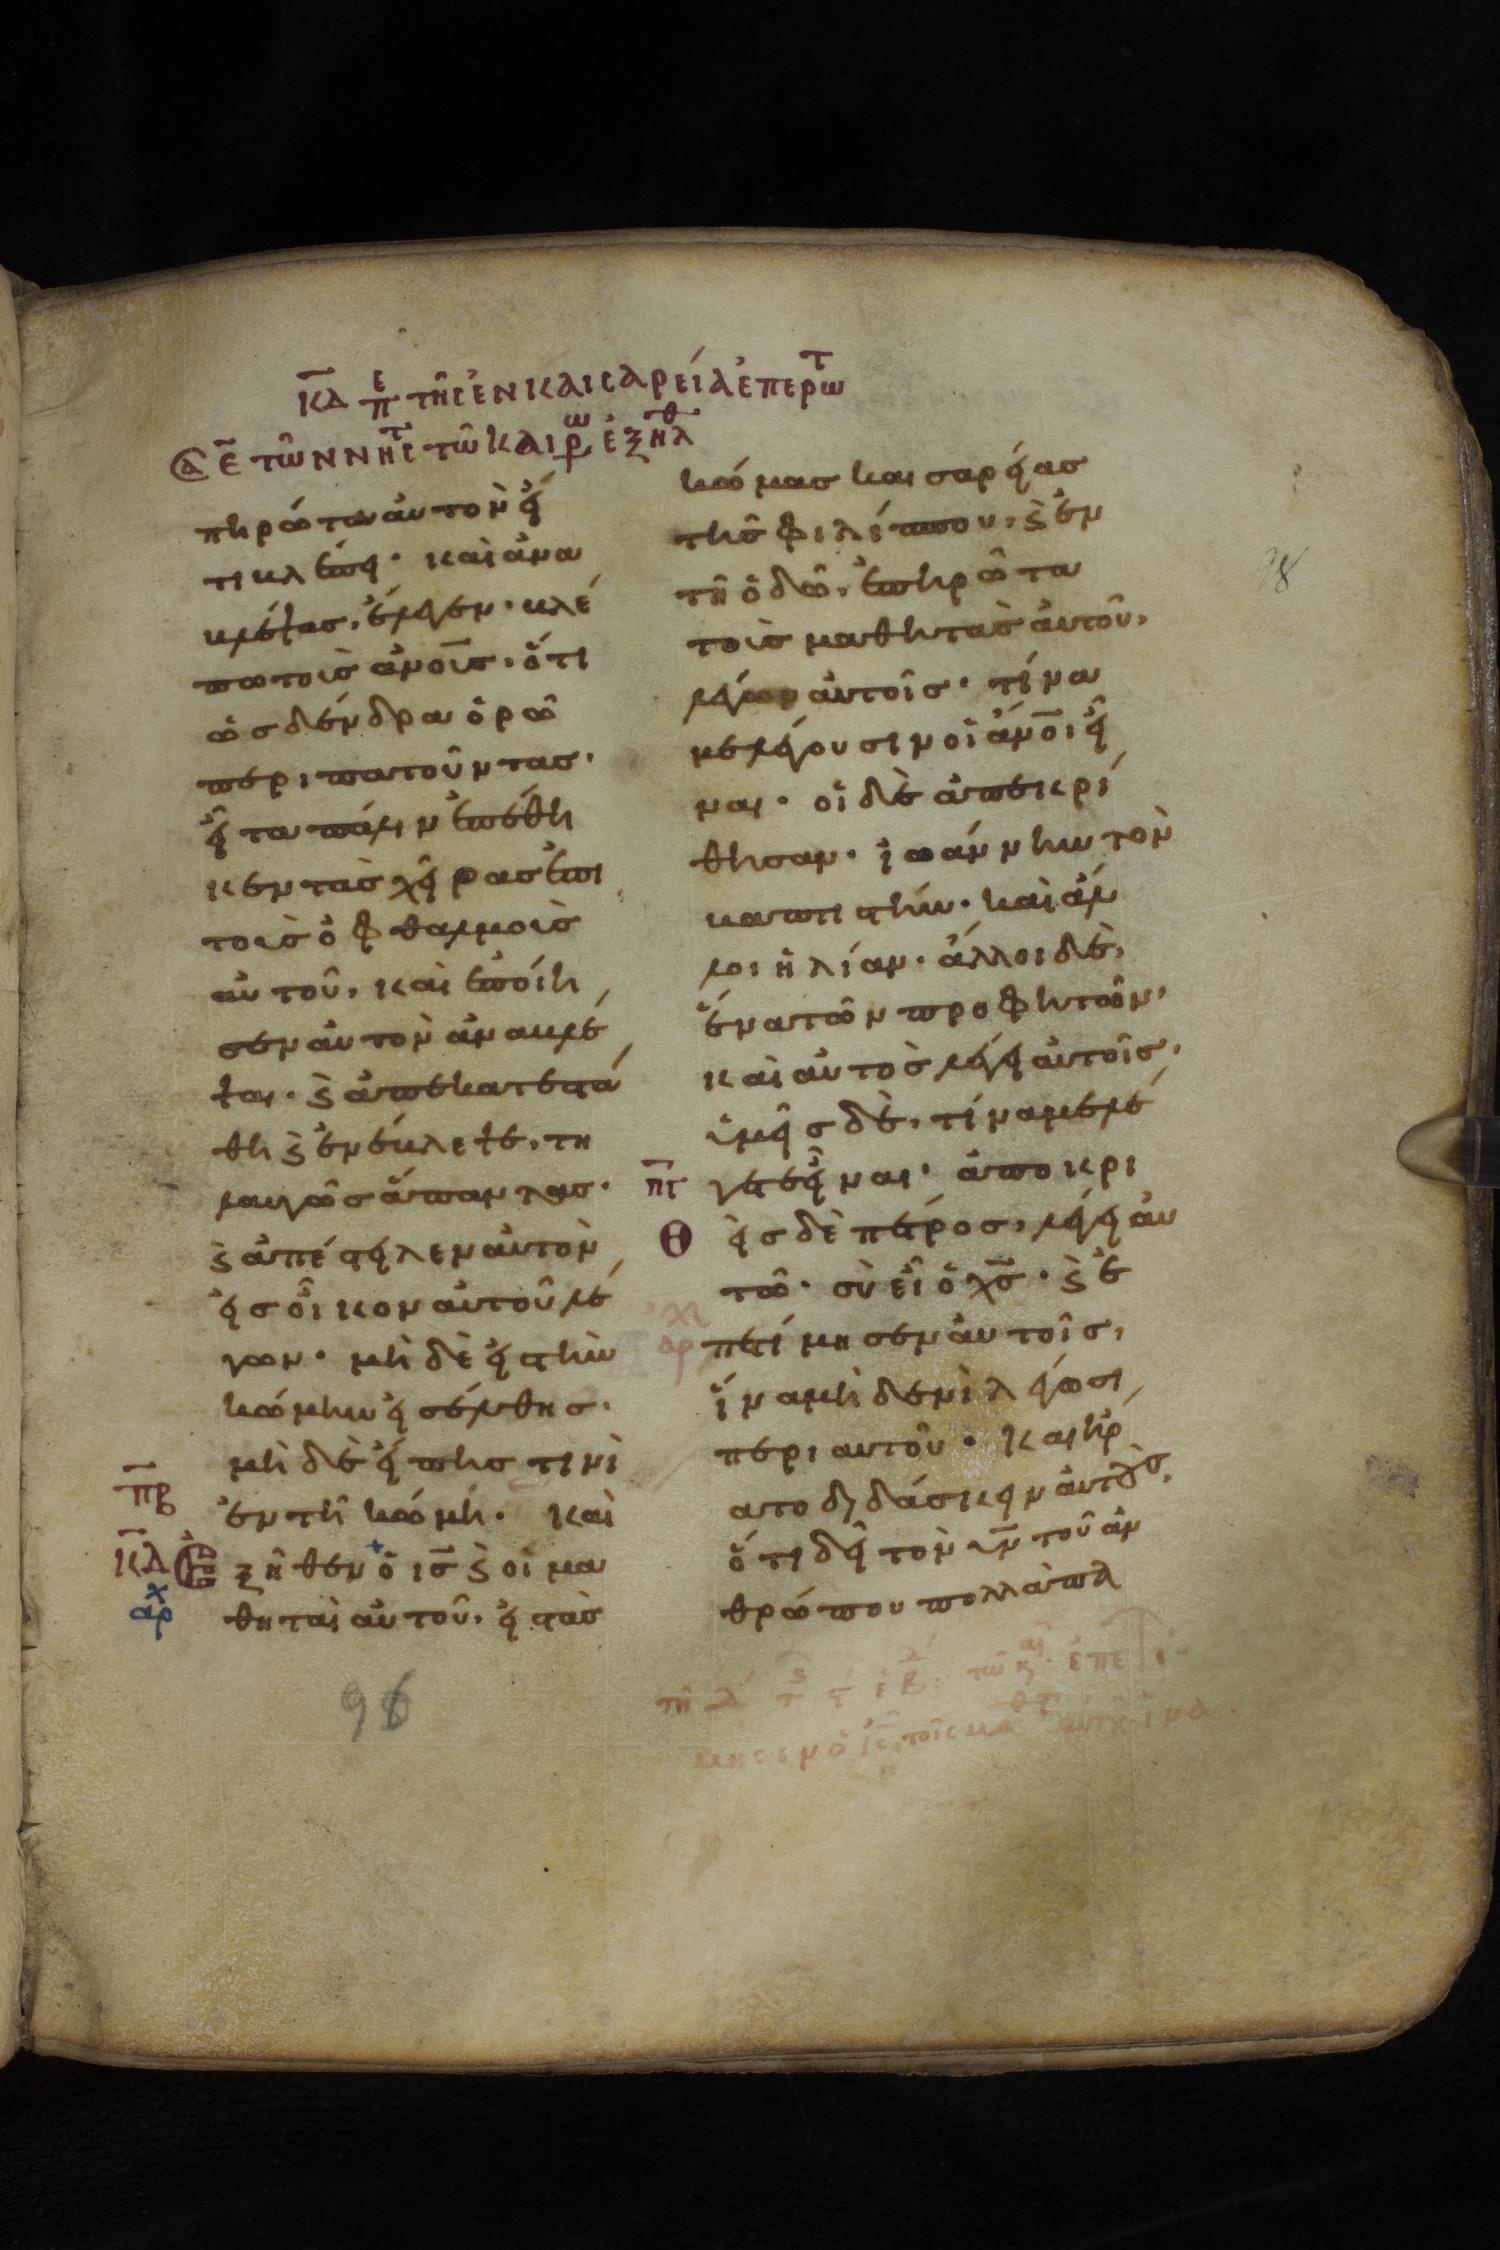 κδ π ε τῆς ἐν καισαρεία ἐπερω τ
ᾱ ε̄ τῶν νης τ τῶ καιρ ω ἐξηλ θ
πηρώτων αὐτὸν εἴ
τι βλέπει· καὶ ἀνα
βλέψας, ἔλεγεν· βλέ
πω τοὺς ἀν̅ο̅υ̅ς, ὅτι
ὡς δένδρα ὁρῶ
περιπατοῦντας·
εἶτα πάλιν ἐπέθη
κεν τὰς χεῖρας ἐπὶ
τοὺς ὀφθαλμοὺς
αὐτοῦ, καὶ ἐποίη
σεν αὐτὸν ἀναβλέ
ψαι· ϗ ἀπεκατεστά
θη ϗ ἐνέβλεψε, τη
λαυγῶς ἅπαντας·
ϗ ἀπέστειλεν αὐτὸν
εἰς οἶκον αὐτοῦ λέ
γων· μὴ δὲ εἰς τὴν
κώμην εἰσέλθης·
μὴ δὲ εἴπης τινὶ
π̅β̅ ἐν τῆ κώμη· καὶ
κ̅δ̅ ἐξῆλθεν ὁ ι̅ς̅ ϗ οἱ μα
αρχ θηταὶ αὐτοῦ, εἰς τὰς
κώμας καισαρείας
τῆς φιλίππου, ϗ ἐν
τῆ ὁδῶ, ἐπηρώτα
τοὺς μαθητὰς αὐτοῦ,
λέγων αὐτοῖς· τίνα
με λέγουσιν οἱ ἄν̅ο̅ι εἶ
ναι· οἱ δὲ ἀπεκρί
θησαν· ἰωάννην τὸν
βαπτιστήν· καὶ ἄλ
λοι ἠλίαν· ἄλλοι δὲ,
ἕνα τῶν προφητῶν,
καὶ αὐτὸς λέγει αὐτοῖς,
ὑμεῖς δὲ, τίνα με λέ
π̅γ̅ γετε εἶναι· ἀποκρι
θ εὶς δὲ πέτρος, λέγει αὐ
τῶ· σὺ εἶ ὁ χ̅ς̅· ϗ ἐ
πετίμησεν αὐτοῖς,
ἵνα μὴ δενὶ λέγωσι
περὶ αὐτοῦ· καὶ ἤρξ
ατο διδάσκειν αὐτοὺς,
ὅτι δεῖ τὸν υ̅ν̅ τοῦ ἀν
θρώπου πολλὰ πα
96
98